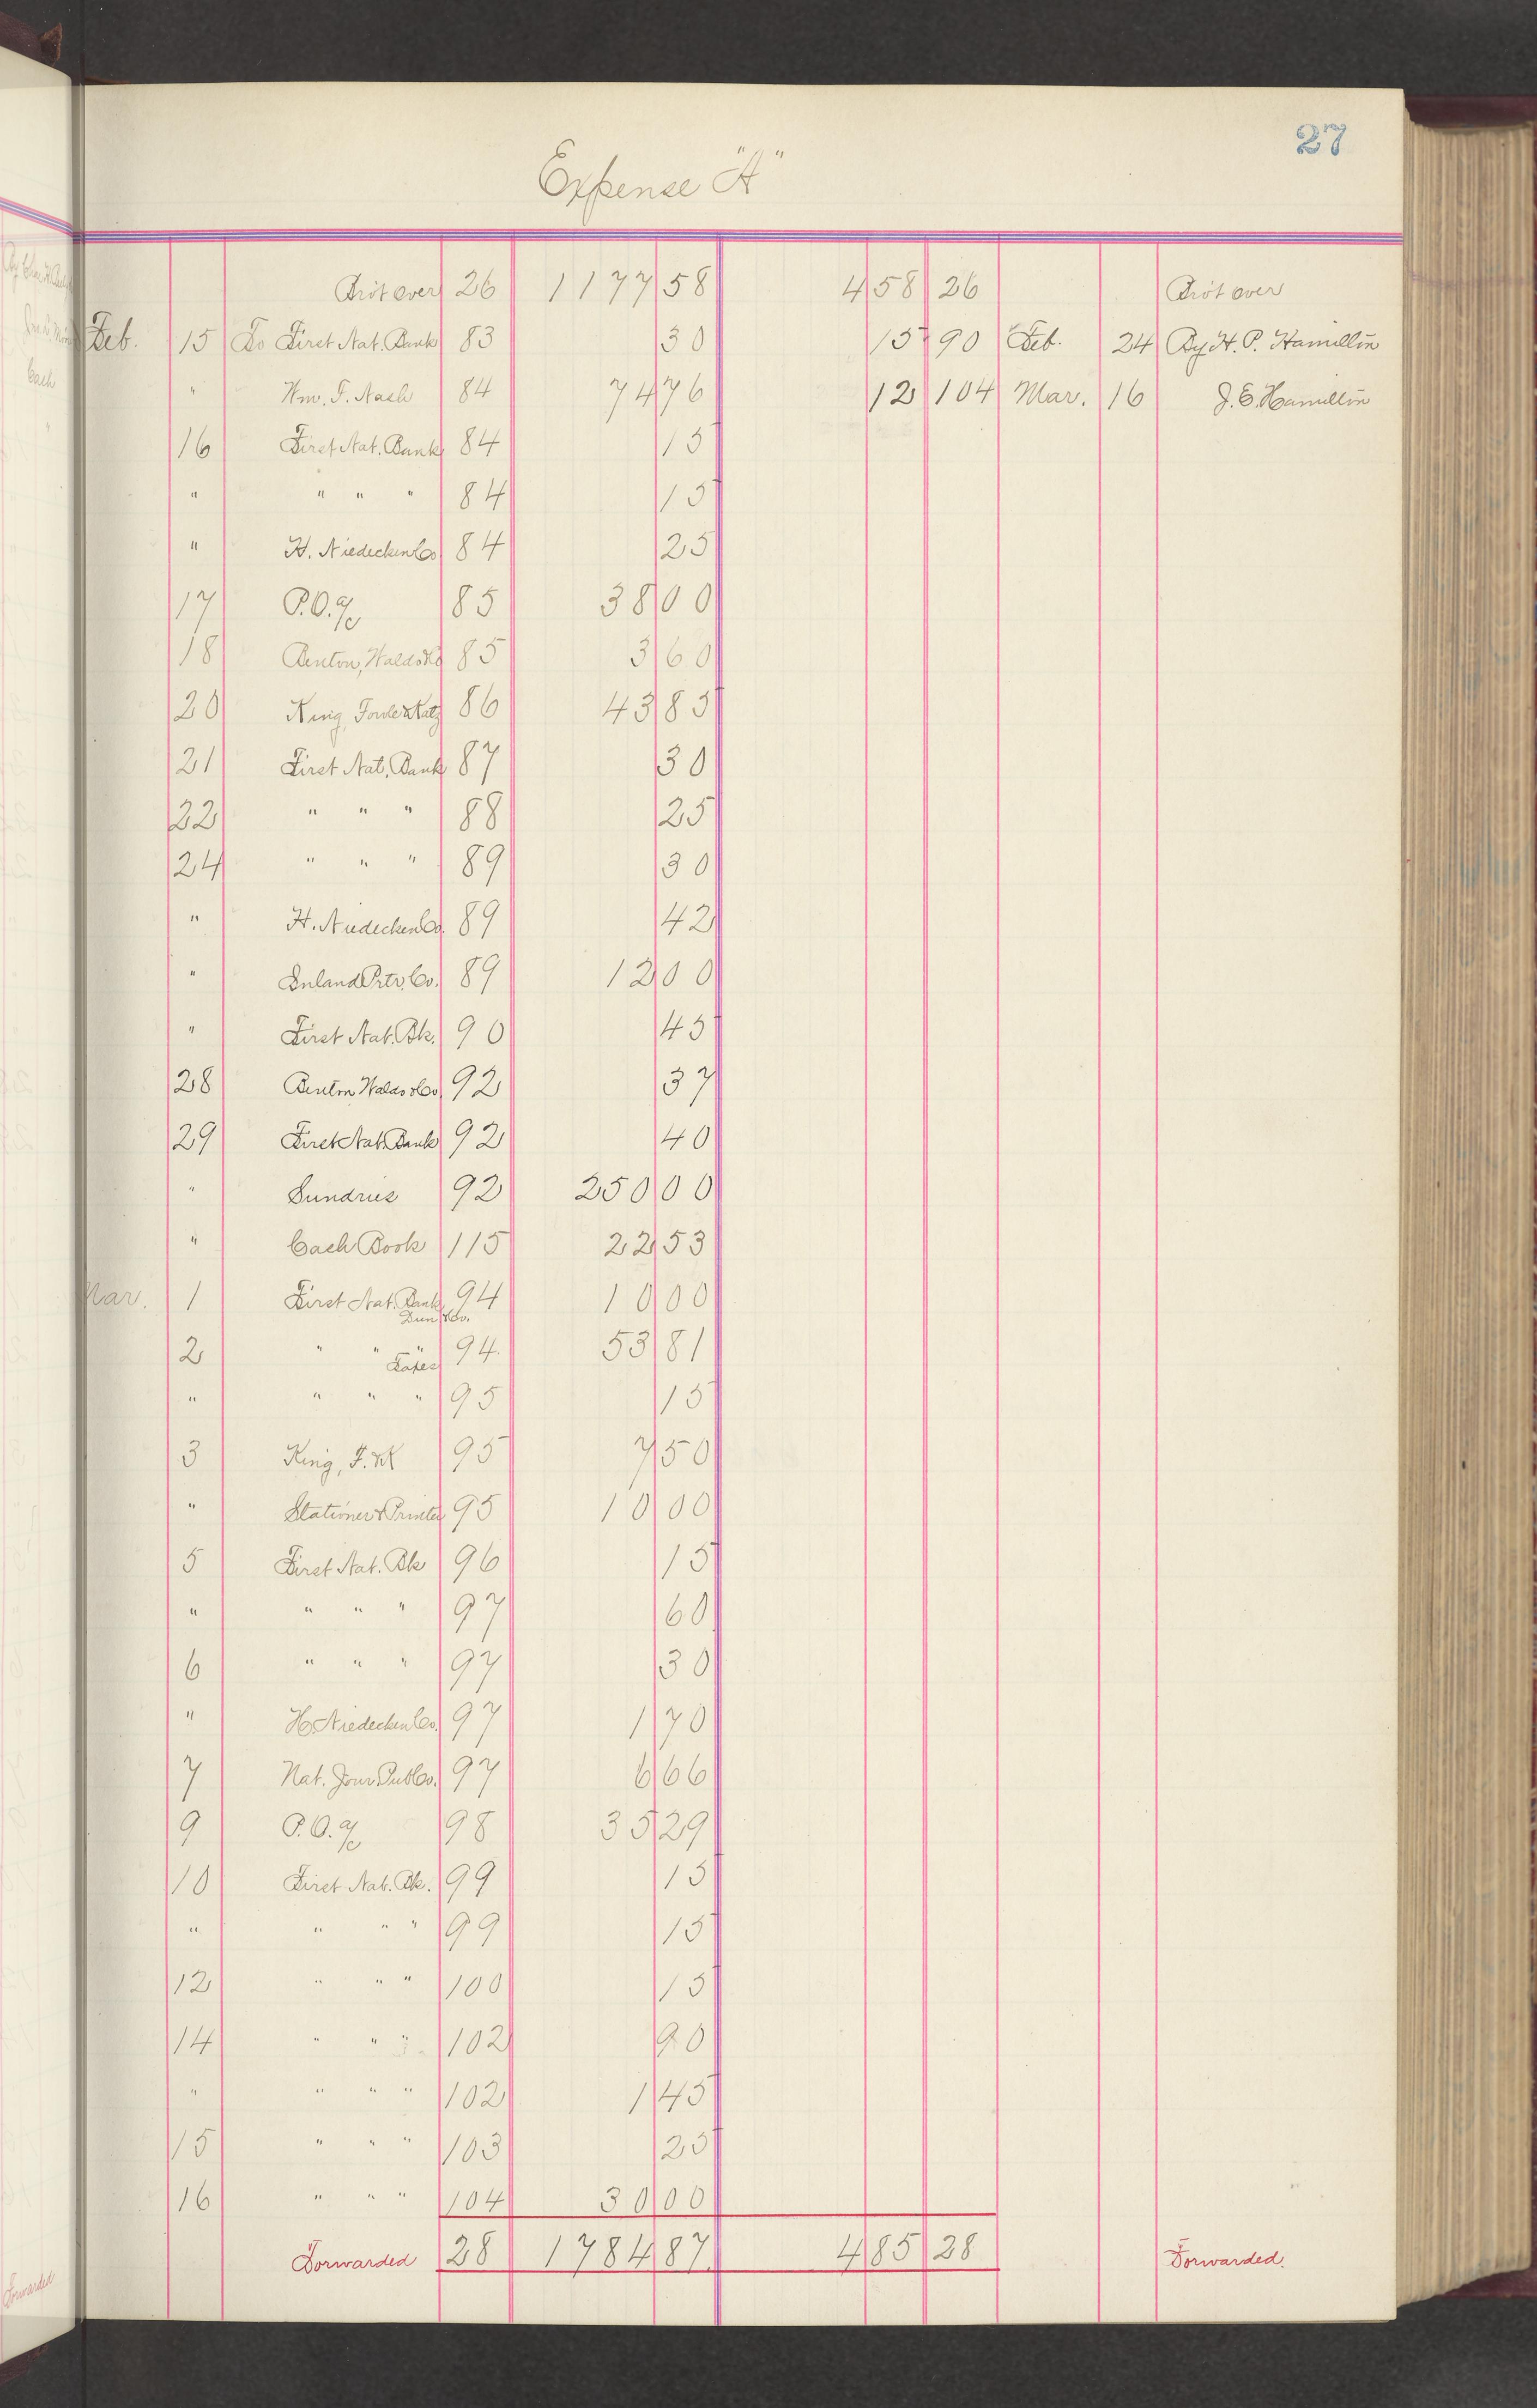 27
Expense "A"
Brot over 26 1177 58 4 58 26 Brot over
Feb. 15 To First Nat. Bank 83 30 15 90 Feb. 24 By H. P. Hamilton
" Wm. F. Nash 84 74 76 12 104 Mar. 16 J. E. Hamilton
16 First Nat. Bank 84 15
" " " " 84 15
" H. Niedecken Co 84 25
17 P.O. a/c 85 38 00
18 Benton, Waldo & Co 85 3 60
20 King Fowle & Katz 86 43 85
21 First Nat. Bank 87 30
22 " " " 88 25
24 " " " 89 30
" H. Niedecken Co. 89 42
" Inland Prtr. Co. 89 12 00
" First Nat. Bk. 90 45
28 Benton Waldo & Co 92 37
29 First Nat. Bank 92 40
" Sundries 92 250 00
" Cash Book 115 22 53
Mar. 1 First Nat. Bank 94 10 00
Dun & Co.
2 " " " 94 53 81
Taxes
" " " " 95 15
3 King, F. & K 95 7 50
" Stationer & Printer 95 10 00
5 First Nat. Bk 96 15
" " " " 97 60
6 " " " 97 30
" H. Niedecken Co. 97 1 70
7 Nat. Jour. Pub Co. 97 6 66
9 P.O. a/c 98 35 29
10 First Nat. Bk. 99 15
" " " " 99 15
12 " " " 100 15
14 " " " 102 90
" " " " 102 1 45
15 " " " 103 25
16 " " " 104 30 00
Forwarded 28 1784 87 4 85 28 Forwarded.
Forwarded